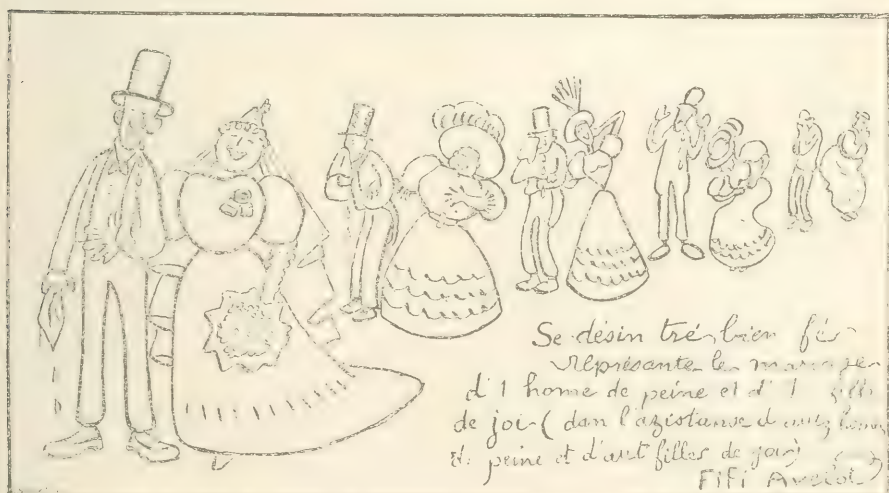 Se désin tré bien fé
représante le mariage
d'1 home de peine et d'1 fille
de joie (dan l'azistanse d'autz homes
de peine et d'aut filles de joie)
FiFi Avelot